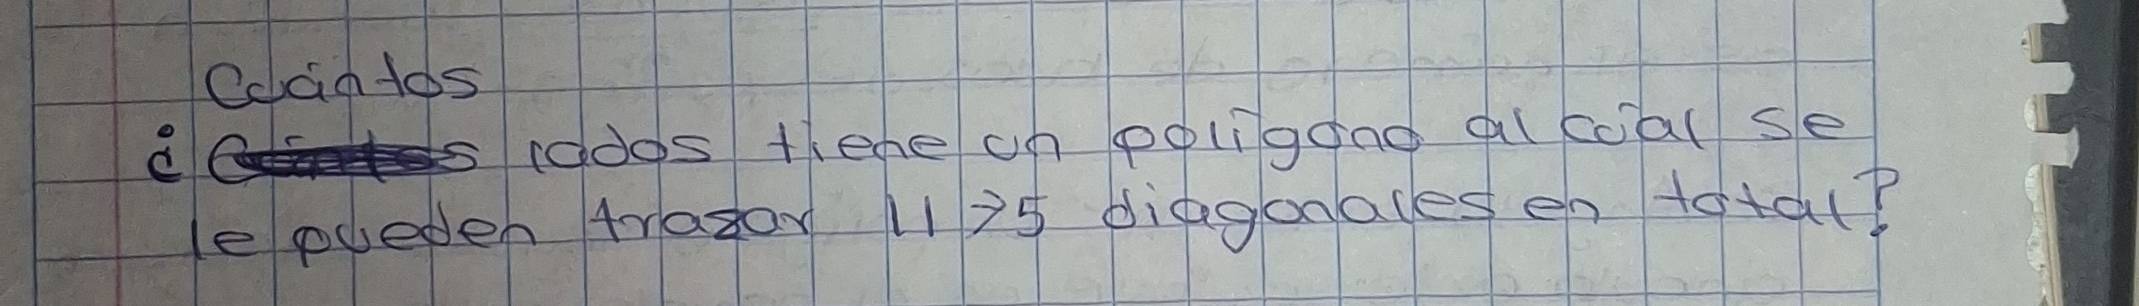 Cuántos
¿ lados tiene un polígono al cual se
le pueden trazar 1175 diagonales en total?